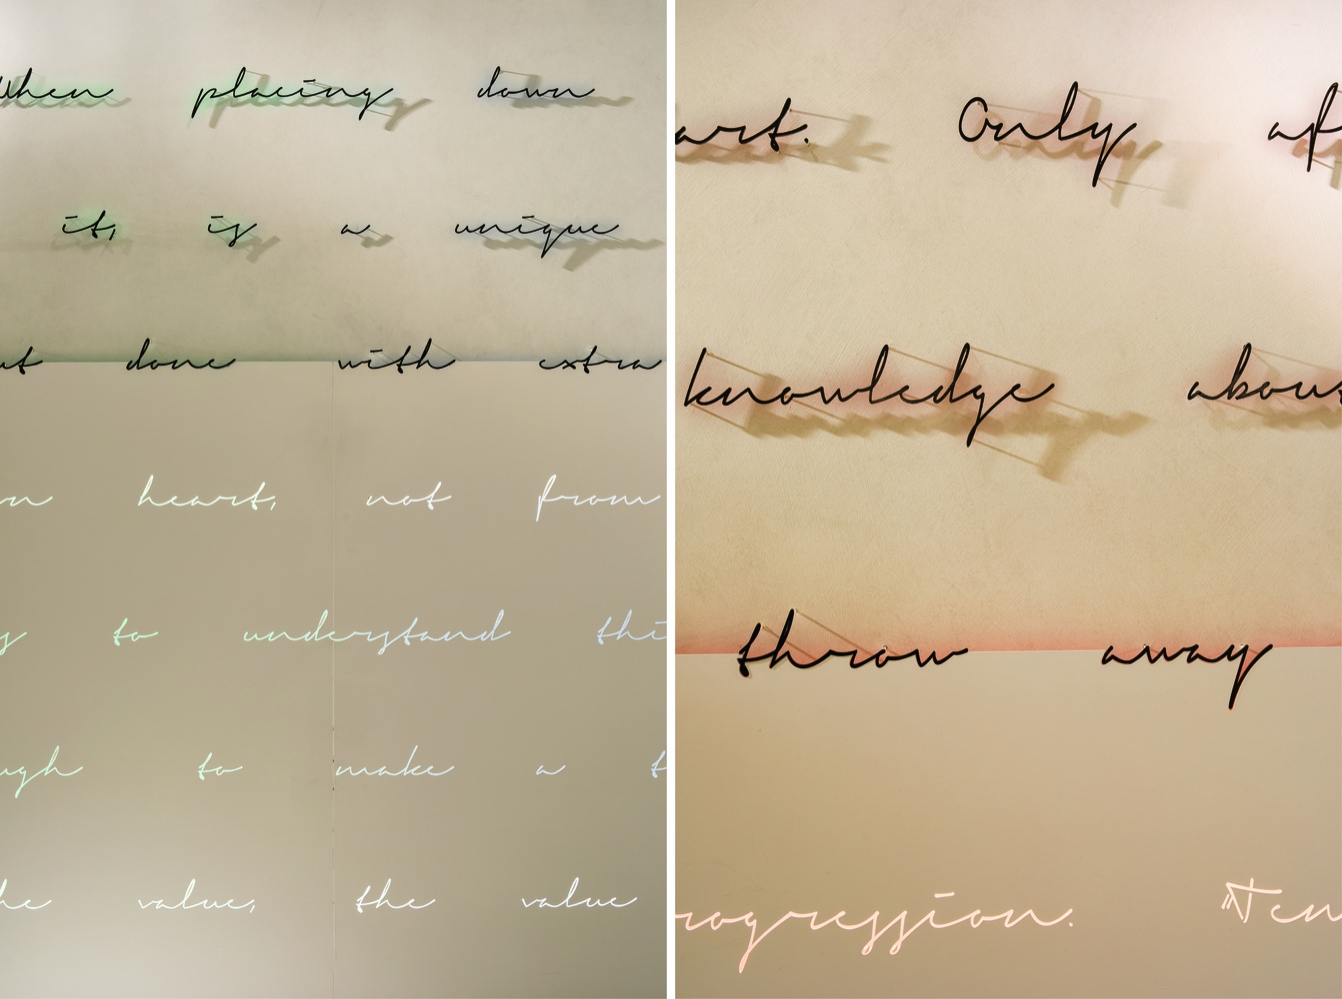 When placing down
it, is a unique
ut done with extra
rn heart, not from
s to understand thi
ugh to make a t
he value, the value
art. Only af
knowledge about
throw away
rogression. "Ten